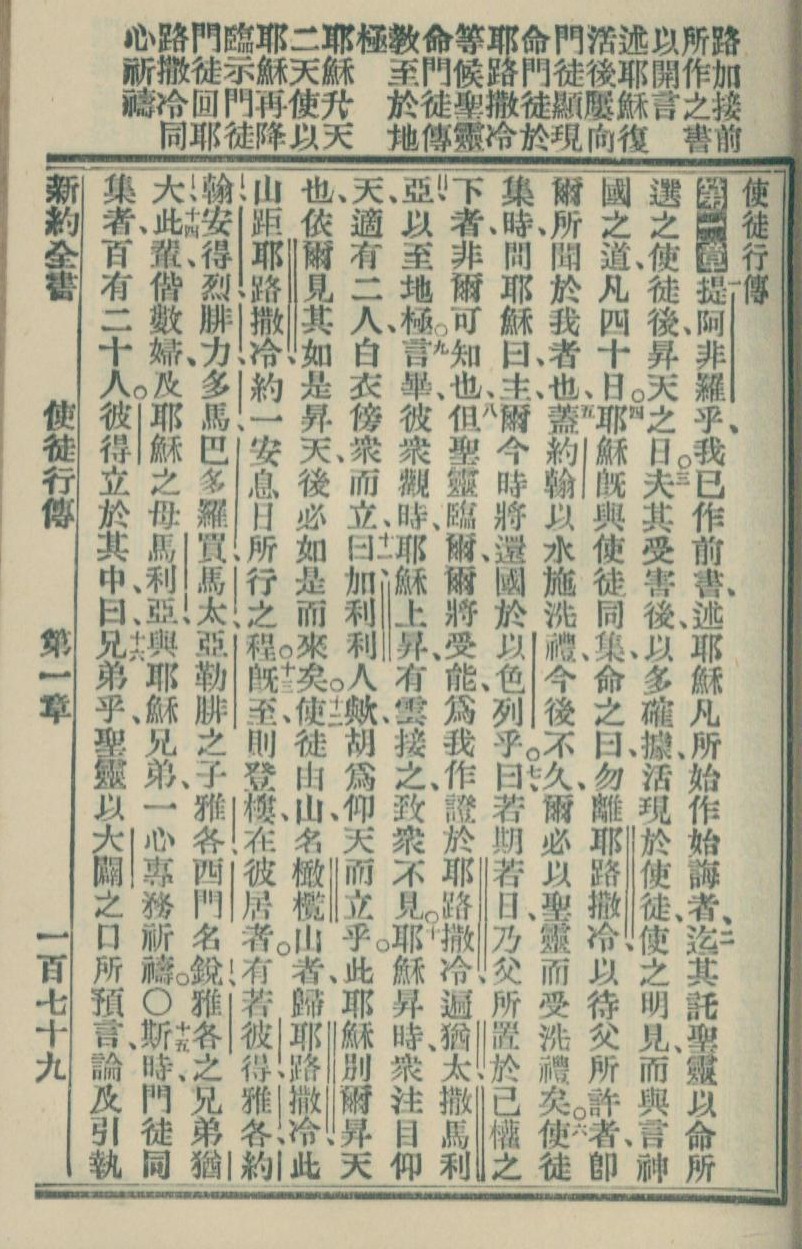 路加接前
所作之書
以開言
述耶穌復
活後屢向
門徒顯現
命門徒於
耶路撒冷
等候聖靈
命門徒傳
教至於地
極
耶穌升天
二天使以
耶穌再降
臨示門徒
門徒回耶
路撒冷同
心祈禱
使徒行傳
第一章一提阿非羅乎、我已作前書、述耶穌凡所始作始誨者、二迄其託聖靈以命所
選之使徒後、昇天之日。三夫其受害後、以多確據、活現於使徒、使之明見、而與言神
國之道、凡四十日。四耶穌既與使徒同集、命之曰、勿離耶路撒冷、以待父所許者、卽
爾所聞於我者也、五蓋約翰以水施洗禮、今後不久、爾必以聖靈而受洗禮矣。六使徒
集時、問耶穌曰、主、爾今時將還國於以色列乎。七曰、若期若日、乃父所置於己權之
下者、非爾可知也、八但聖靈臨爾、爾將受能、爲我作證於耶路撒冷、遍猶太、撒馬利
亞、以至地極。九言畢、彼衆觀時、耶穌上昇、有雲接之、致衆不見。十耶穌昇時、衆注目仰
天、適有二人、白衣傍衆而立、十一曰、加利利人歟、胡爲仰天而立乎。此耶穌別爾昇天
也、依爾見其如是昇天、後必如是而來矣。十二使徒由山名橄欖山者、歸耶路撒冷、此
山距耶路撒冷、約一安息日所行之程。十三既至、則登樓、在彼居者、有若彼得、雅各、約
翰、安得烈、腓力、多馬、巴多羅買、馬太、亞勒腓之子雅各、西門名銳、雅各之兄弟猶
大、十四此輩偕數婦、及耶穌之母馬利亞、與耶穌兄弟、一心專務祈禱。〇十五斯時、門徒同
集者、百有二十人。彼得立於其中、曰、十六兄弟乎、聖靈以大闢之口所預言、論及引執
新約全書 使徒行傳 第一章 一百七十九